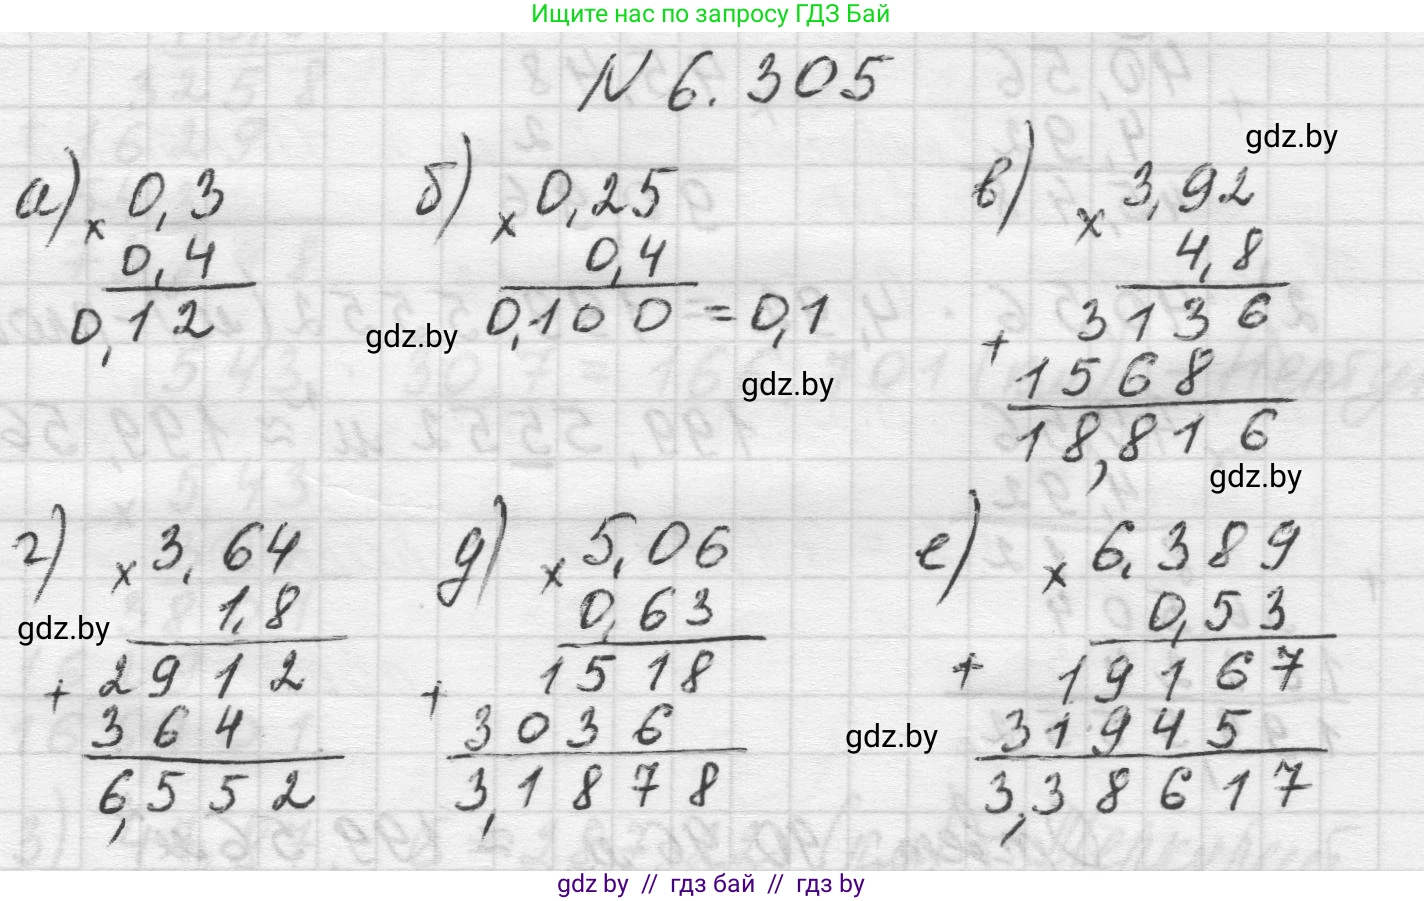 Ищите нас по запросу ГДЗ Бай
N 6.305
gdz.by
а) × 0,3
0,4
0,12
б) × 0,25
0,4
0,100 = 0,1
gdz.by
gdz.by
в) × 3,92
4,8
3136
+
1568
18,816
gdz.by
г) × 3,64
1,8
gdz.by
2912
+
364
6,552
д) × 5,06
0,63
1518
+
3036
3,1878
е) × 6,389
0,53
+ 19167
31945
3,38617
gdz.by
gdz by // гдз бай // гдз by